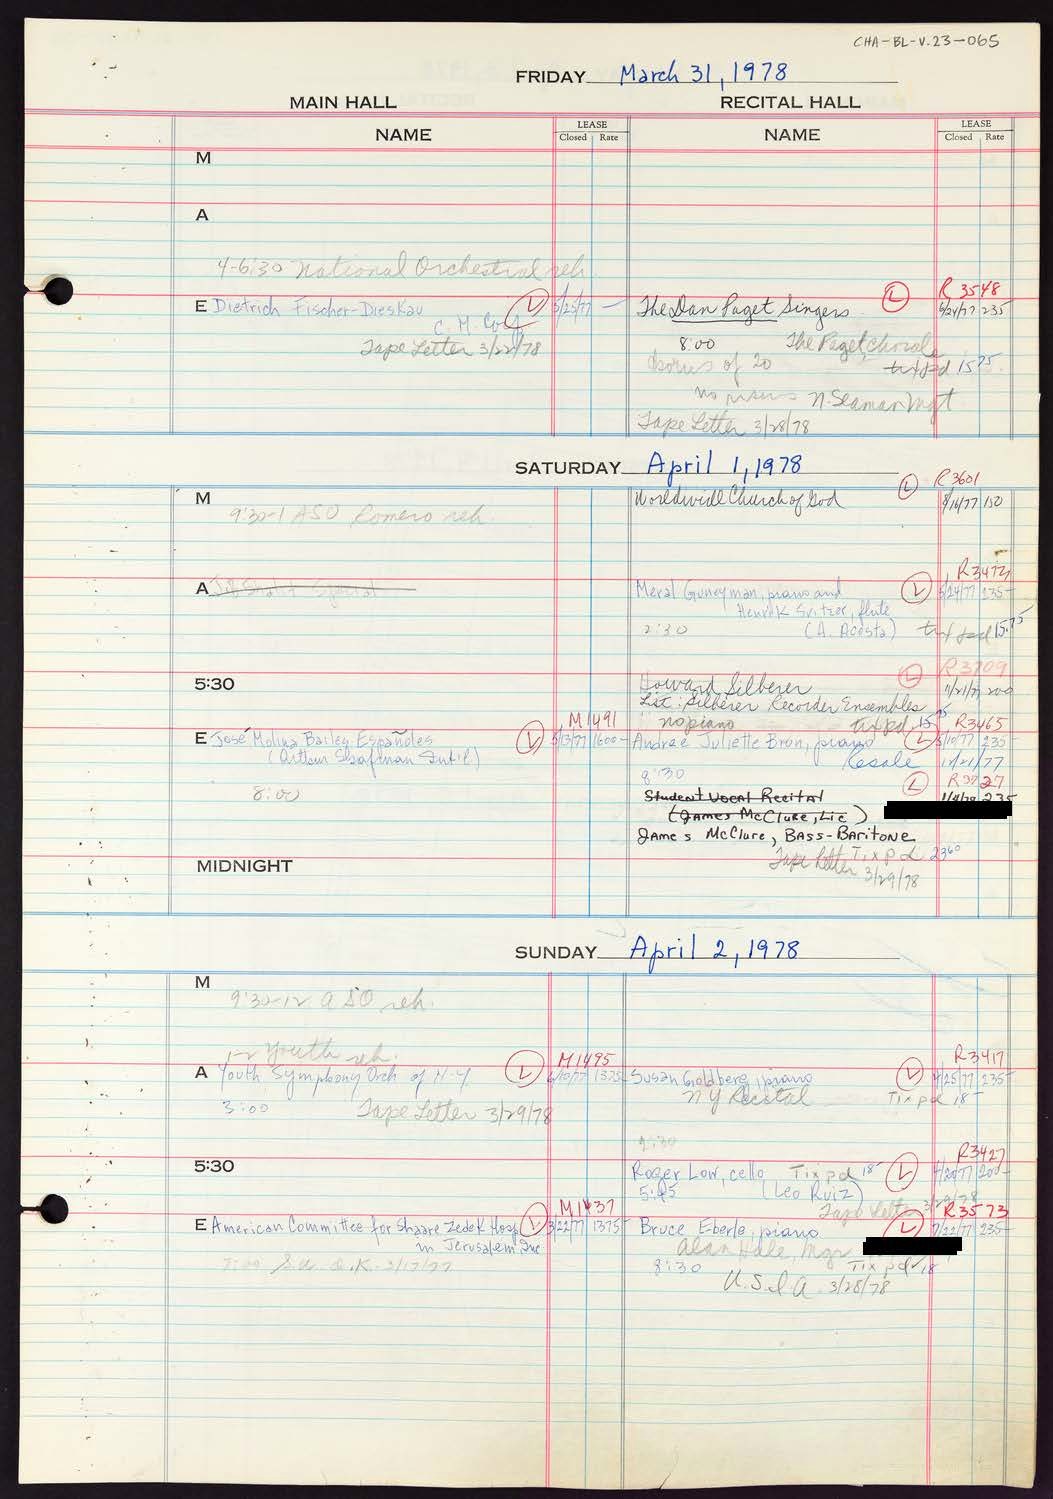 CHA-BL-V.23-065
FRIDAY March 31, 1978
MAIN HALL RECITAL HALL
NAME LEASE NAME LEASE
Closed Rate Closed Rate
M
A
4-6:30 National Orchestral reh.
R 3548
E Dietrich Fischer-Dieskau L 5/25/77 - The Dan Paget Singers L 6/24/77 235
C. M. Corp
8:00 The Paget Chorale
Tape Letter 3/22/78
chorus of 20 tix pd 15 75
no risers N. Seaman Mgt
Tape Letter 3/28/78
SATURDAY April 1, 1978
L R3601
M Worldwide Church of God 8/16/77 150
9:30-1 ASO Romero reh.
R3473
A Meral Guneyman, piano and L 5/24/77 235-
Henrik Svitzer, flute
2:30 (A. Acosta) tix pd 15.75
L R3709
5:30 Howard Silberer 11/21/77 200
List: Silberer Recorder Ensembles
M1491 no piano tix pd. 15 75 R3465
E José Molina Bailes Españoles L 5/13/77 1600- Andrée Juliette Brun, piano L 5/10/77 235-
(Arthur Shafman Intil) Resale 12/21/77
8:30 L R3727
8:00 Student Vocal Recital 235
(James McClure, Lic)
James McClure, BASS-BARITONE
Tape Letter Tix pd 23 60
MIDNIGHT 3/29/78
SUNDAY April 2, 1978
M
9:30-12 ASO reh.
1-2 Youth reh.
M1495 R3417
A Youth Symphony Orch of N-Y L 6/10/77 1375- Susan Goldberg, piano L 4/25/77 235-
NY Recital Tix pd 18-
3:00 Tape Letter 3/29/78
R3427
5:30 Roger Low, cello Tix pd 18- L 4/20/77 200-
5:45 (Leo Ruiz)
Tape Letter 3/29/78
M1437 R3573
E American Committee for Shaare Zedek Hosp L 3/22/77 1375- Bruce Eberle, piano L 7/22/77 235-
in Jerusalem Inc Alan Hale, Mgr
O.K. 3/17/77 8:30 Tix pd 18
U.S.I.A. 3/28/78